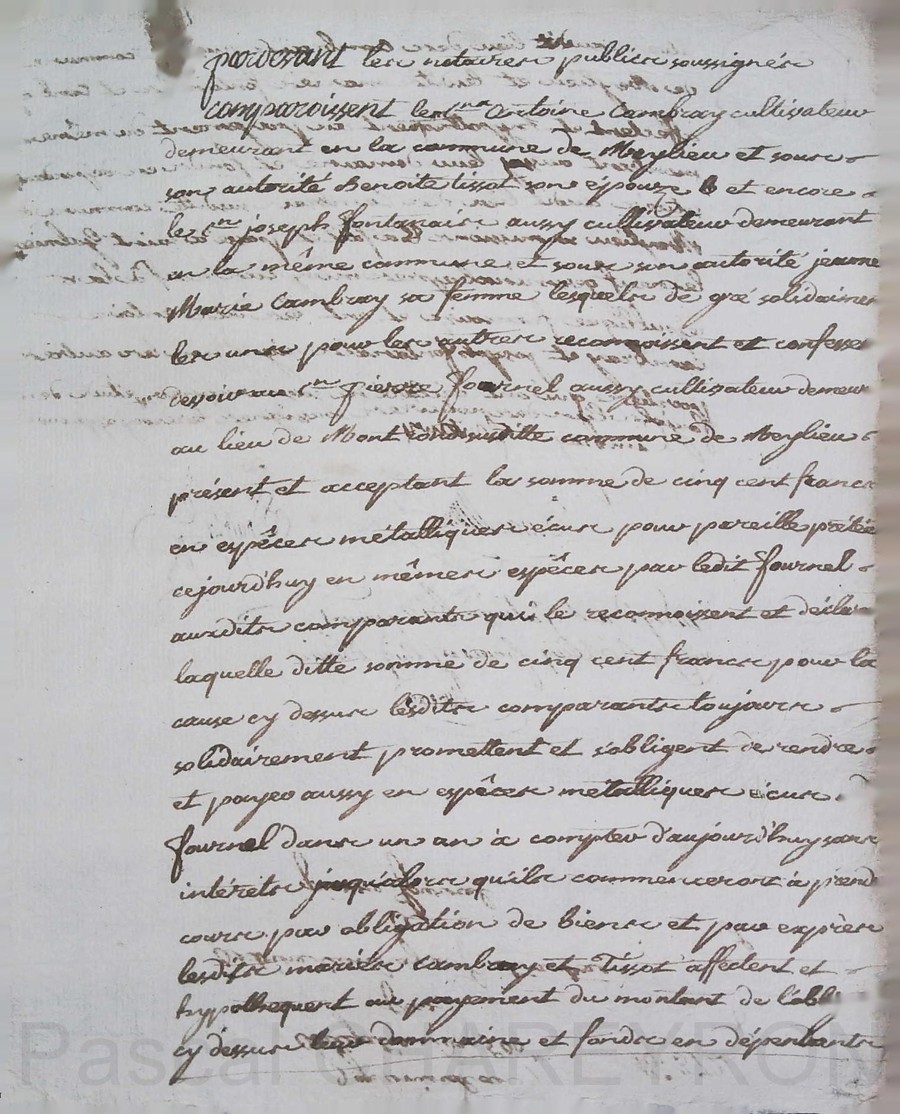 pardevant les notaires publics soussignés
comparoissent le sr Antoine Cambray cultivateur
demeurant en la commune de Merylieu et sous
son autorité Benoite tissot son épouze et encore
le sr joseph fontanaire aussy cultivateur demeurant
en la même commune et sous son autorité jeanne
Marie Cambray sa femme lesquels de gré solidairem
les uns pour les autres reconnoissent et confesse
devoir au sr pierre fournel aussy cultivateur demeur
au lieu de Mont susditte commune de Merylieu
présent et acceptant la somme de cinq cent francs
en espêces métalliques écus pour pareille prétée
cejourd'huy en mêmes espêces par ledit fournel
auxdits comparants qui le reconnoissent et déclar
laquelle ditte somme de cinq cent francs pour la
cause cy dessus lesdits comparants toujours
solidairement promettent et s'obligent de rendre
et payer aussy en espêces métalliques écus
fournel dans un an à compter d'aujourd'huy sans
intérêts jusqu'alors qu'ils commenceront à prend
cours par obligation de biens et par exprès
lesdits mariés Cambray et Tissot affectent et
hypothequent au payement du montant de l'obl
cy dessus leur dommaine et fonds en dépendants
Pascal CHAREYRON